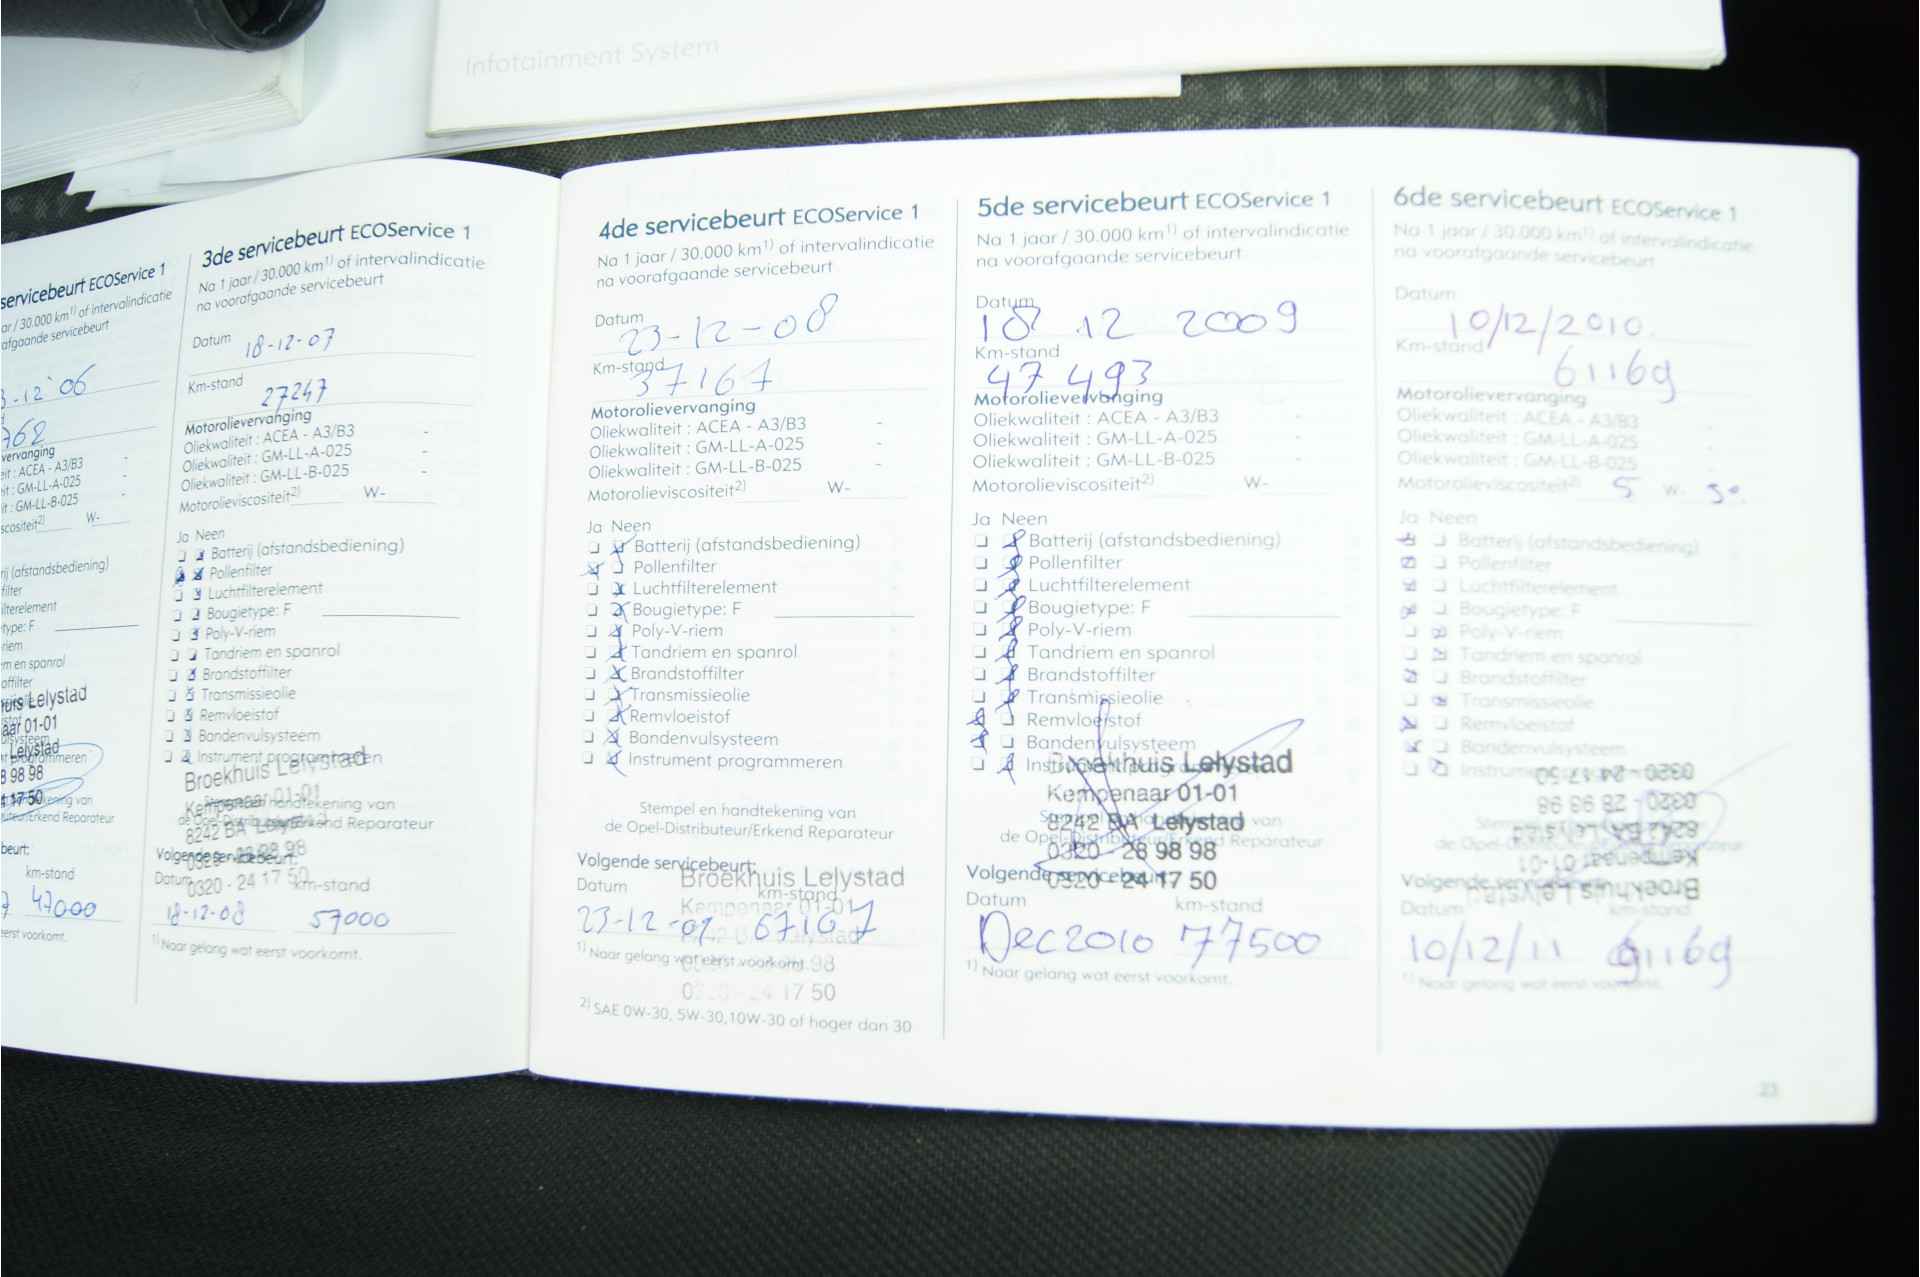 Infotainment System
servicebeurt ECOService 1
ar / 30.000 km1) of intervalindicatie
afgaande servicebeurt
-12-06
762
vervanging
eit : ACEA - A3/B3 -
eit : GM-LL-A-025 -
it : GM-LL-B-025 -
scositeit2) W-
rij (afstandsbediening)
filter
ilterelement
type: F
riem
m en spanrol
offilter
huis Lelystad
aar 01-01
Lelystad
programmeren
8 98 98
24 17 50
kening van
uteur/Erkend Reparateur
beurt:
km-stand
47000
eerst voorkomt.
3de servicebeurt ECOService 1
Na 1 jaar / 30.000 km1) of intervalindicatie
na voorafgaande servicebeurt
Datum 18-12-07
Km-stand 27247
Motorolievervanging
Oliekwaliteit : ACEA - A3/B3 -
Oliekwaliteit : GM-LL-A-025 -
Oliekwaliteit : GM-LL-B-025 -
Motorolieviscositeit2) W-
Ja Neen
Batterij (afstandsbediening)
Pollenfilter
Luchtfilterelement
Bougietype: F
Poly-V-riem
Tandriem en spanrol
Brandstoffilter
Transmissieolie
Remvloeistof
Bandenvulsysteem
Instrument programmeren
Broekhuis Lelystad
Kempenaar 01-01
handtekening van
8242 BA Lelystad
Erkend Reparateur
0320 - 28 98 98
Volgende servicebeurt:
0320 - 24 17 50
Datum km-stand
18-12-08 57000
1) Naar gelang wat eerst voorkomt.
4de servicebeurt ECOService 1
Na 1 jaar / 30.000 km1) of intervalindicatie
na voorafgaande servicebeurt
Datum
23-12-08
Km-stand
37167
Motorolievervanging
Oliekwaliteit : ACEA - A3/B3 -
Oliekwaliteit : GM-LL-A-025 -
Oliekwaliteit : GM-LL-B-025 -
Motorolieviscositeit2) W-
Ja Neen
Batterij (afstandsbediening)
Pollenfilter
Luchtfilterelement
Bougietype: F
Poly-V-riem
Tandriem en spanrol
Brandstoffilter
Transmissieolie
Remvloeistof
Bandenvulsysteem
Instrument programmeren
Stempel en handtekening van
de Opel-Distributeur/Erkend Reparateur
Volgende servicebeurt:
Broekhuis Lelystad
Datum km-stand
Kempenaar 01-01
23-12-09 67167
8242 BA Lelystad
1) Naar gelang wat eerst voorkomt.
0320 - 28 98 98
0320 - 24 17 50
2) SAE 0W-30, 5W-30,10W-30 of hoger dan 30
5de servicebeurt ECOService 1
Na 1 jaar / 30.000 km1) of intervalindicatie
na voorafgaande servicebeurt
Datum
18 12 2009
Km-stand
47 493
Motorolievervanging
Oliekwaliteit : ACEA - A3/B3 -
Oliekwaliteit : GM-LL-A-025 -
Oliekwaliteit : GM-LL-B-025 -
Motorolieviscositeit2) W-
Ja Neen
Batterij (afstandsbediening)
Pollenfilter
Luchtfilterelement
Bougietype: F
Poly-V-riem
Tandriem en spanrol
Brandstoffilter
Transmissieolie
Remvloeistof
Bandenvulsysteem
Instrument programmeren
Broekhuis Lelystad
Kempenaar 01-01
Stempel en handtekening van
8242 BA Lelystad
de Opel-Distributeur/Erkend Reparateur
0320 - 28 98 98
Volgende servicebeurt:
0320 - 24 17 50
Datum km-stand
Dec 2010 77500
1) Naar gelang wat eerst voorkomt.
6de servicebeurt ECOService 1
Na 1 jaar / 30.000 km1) of intervalindicatie
na voorafgaande servicebeurt
Datum
10/12/2010.
Km-stand
61169
Motorolievervanging
Oliekwaliteit : ACEA - A3/B3 -
Oliekwaliteit : GM-LL-A-025 -
Oliekwaliteit : GM-LL-B-025 -
Motorolieviscositeit2) 5 W- 30.
Ja Neen
Batterij (afstandsbediening)
Pollenfilter
Luchtfilterelement
Bougietype: F
Poly-V-riem
Tandriem en spanrol
Brandstoffilter
Transmissieolie
Remvloeistof
Bandenvulsysteem
Instrument
0320 - 24 17 50
0320 - 28 98 98
8242 BA Lelystad
Kempenaar 01-01
Volgende servicebeurt:
Broekhuis Lelystad
Datum km-stand
10/12/11 91169
1) Naar gelang wat eerst voorkomt.
23